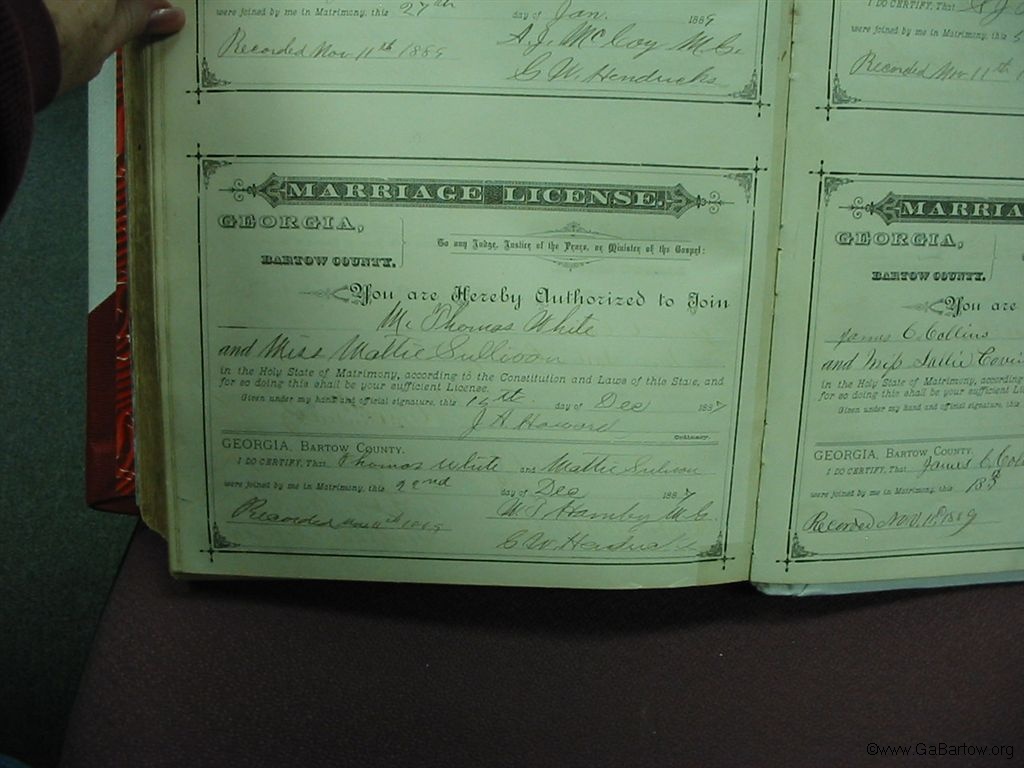 were joined by me in Matrimony, this 27th day of Jan. 1889
Recorded Nov 11th 1889
A. J. McCoy M.G.
G W. Hendricks
MARRIAGE LICENSE.
GEORGIA,
BARTOW COUNTY.
To any Judge, Justice of the Peace, or Minister of the Gospel:
You are Hereby Authorized to Join
Mr Thomas White
and Miss Mattie Sullivan
in the Holy State of Matrimony, according to the Constitution and Laws of this State, and
for so doing this shall be your sufficient License.
Given under my hand and official signature, this day of Dec 1887
J A Howard
Ordinary.
GEORGIA, BARTOW COUNTY.
I DO CERTIFY, That Thomas White and Mattie Sulivan
were joined by me in Matrimony, this 22nd day of Dec 1887
Recorded Nov 11th 1889
M.G.
G W. Hendricks
I DO CERTIFY, That
were joined by me in Matrimony, this
Recorded Nov 11th
MARRIA
GEORGIA,
BARTOW COUNTY.
You are
James C. Collins
and Miss Sallie
in the Holy State of Matrimony, according
for so doing this shall be your sufficient Li
Given under my hand and official signature, this
GEORGIA, BARTOW COUNTY.
I DO CERTIFY, That James C. Col
were joined by me in Matrimony, this
Recorded Nov. 11th 1889
©www.GaBartow.org